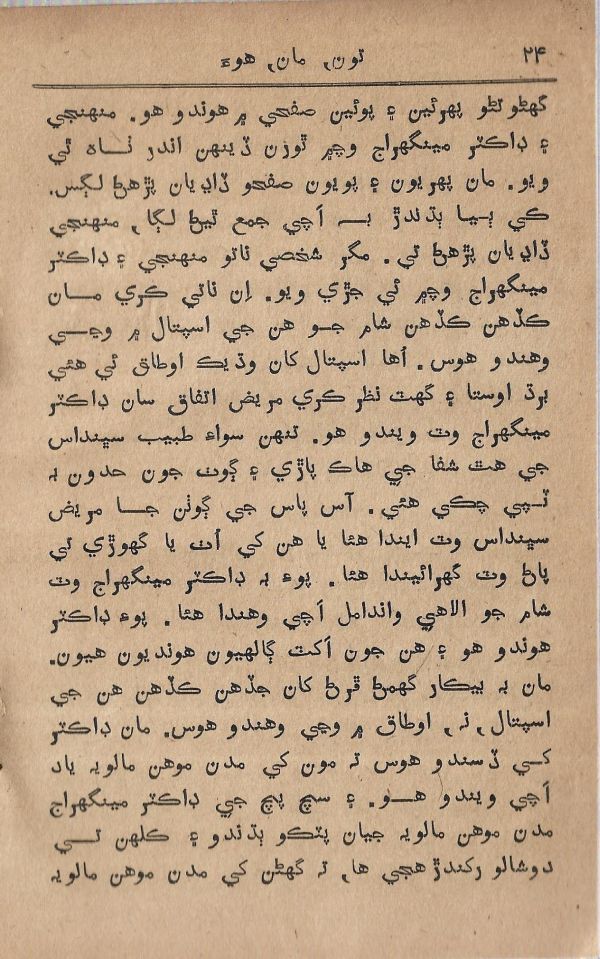 ۲۴ تون، مان، هوءَ
گهڻو ڻڻو پهرئين ۽ پوئين صفحي ۾ هوندو هو. منهنجي
۽ ڊاڪٽر مينگهراج وچ۾ ٿوڙن ڏينهن اندر ٺاه ٿي
ويو. مان پهريون ۽ پويون صفحو ڏاڍيان پڙهڻ لڳس.
ڪي ٻيا ٻڌندڙ به اَچي جمع ٿيڻ لڳا، منهنجي
ڏاڍيان پڙهڻ تي. مگر شخصي ناتو منهنجي ۽ ڊاڪٽر
مينگهراج وچ۾ ئي جڙي ويو. اِن ناتي ڪري مان
ڪڏهن ڪڏهن شام جو هن جي اسپتال ۾ وڃي
وهندو هوس. اُها اسپتال کان وڌيڪ اوطاق ئي هئي
برڌ اوستا ۽ گهٽ نظر ڪري مريض اتفاق سان ڊاڪٽر
مينگهراج وٽ ويندو هو. تنهن سواءِ طبيب سڀنداس
جي هٿ شفا جي هاڪ پاڙي ۽ ڳوٺ جون حدون به
ٽپي چڪي هئي. آس پاس جي ڳوٺن جا مريض
سڀنداس وٽ ايندا هئا يا هن کي اُٺ يا گهوڙي تي
پاڻ وٽ گهرائيندا هئا. پوءِ به ڊاڪٽر مينگهراج وٽ
شام جو الاهي واندامل اَچي وهندا هئا. پوءِ ڊاڪٽر
هوندو هو ۽ هن جون اَکٽ ڳالهيون هونديون هيون.
مان به بيڪار گهمڻ ڦرڻ کان جڏهن ڪڏهن هن جي
اسپتال، نه، اوطاق ۾ وڃي وهندو هوس. مان ڊاڪٽر
کي ڏسندو هوس ته مون کي مدن موهن مالويه ياد
اَچي ويندو هو. ۽ سچ پچ جي ڊاڪٽر مينگهراج
مدن موهن مالويه جيان پٽڪو ٻڌندو ۽ ڪلهن تي
دوشالو رکندڙ هجي ها، ته گهڻن کي مدن موهن مالويه